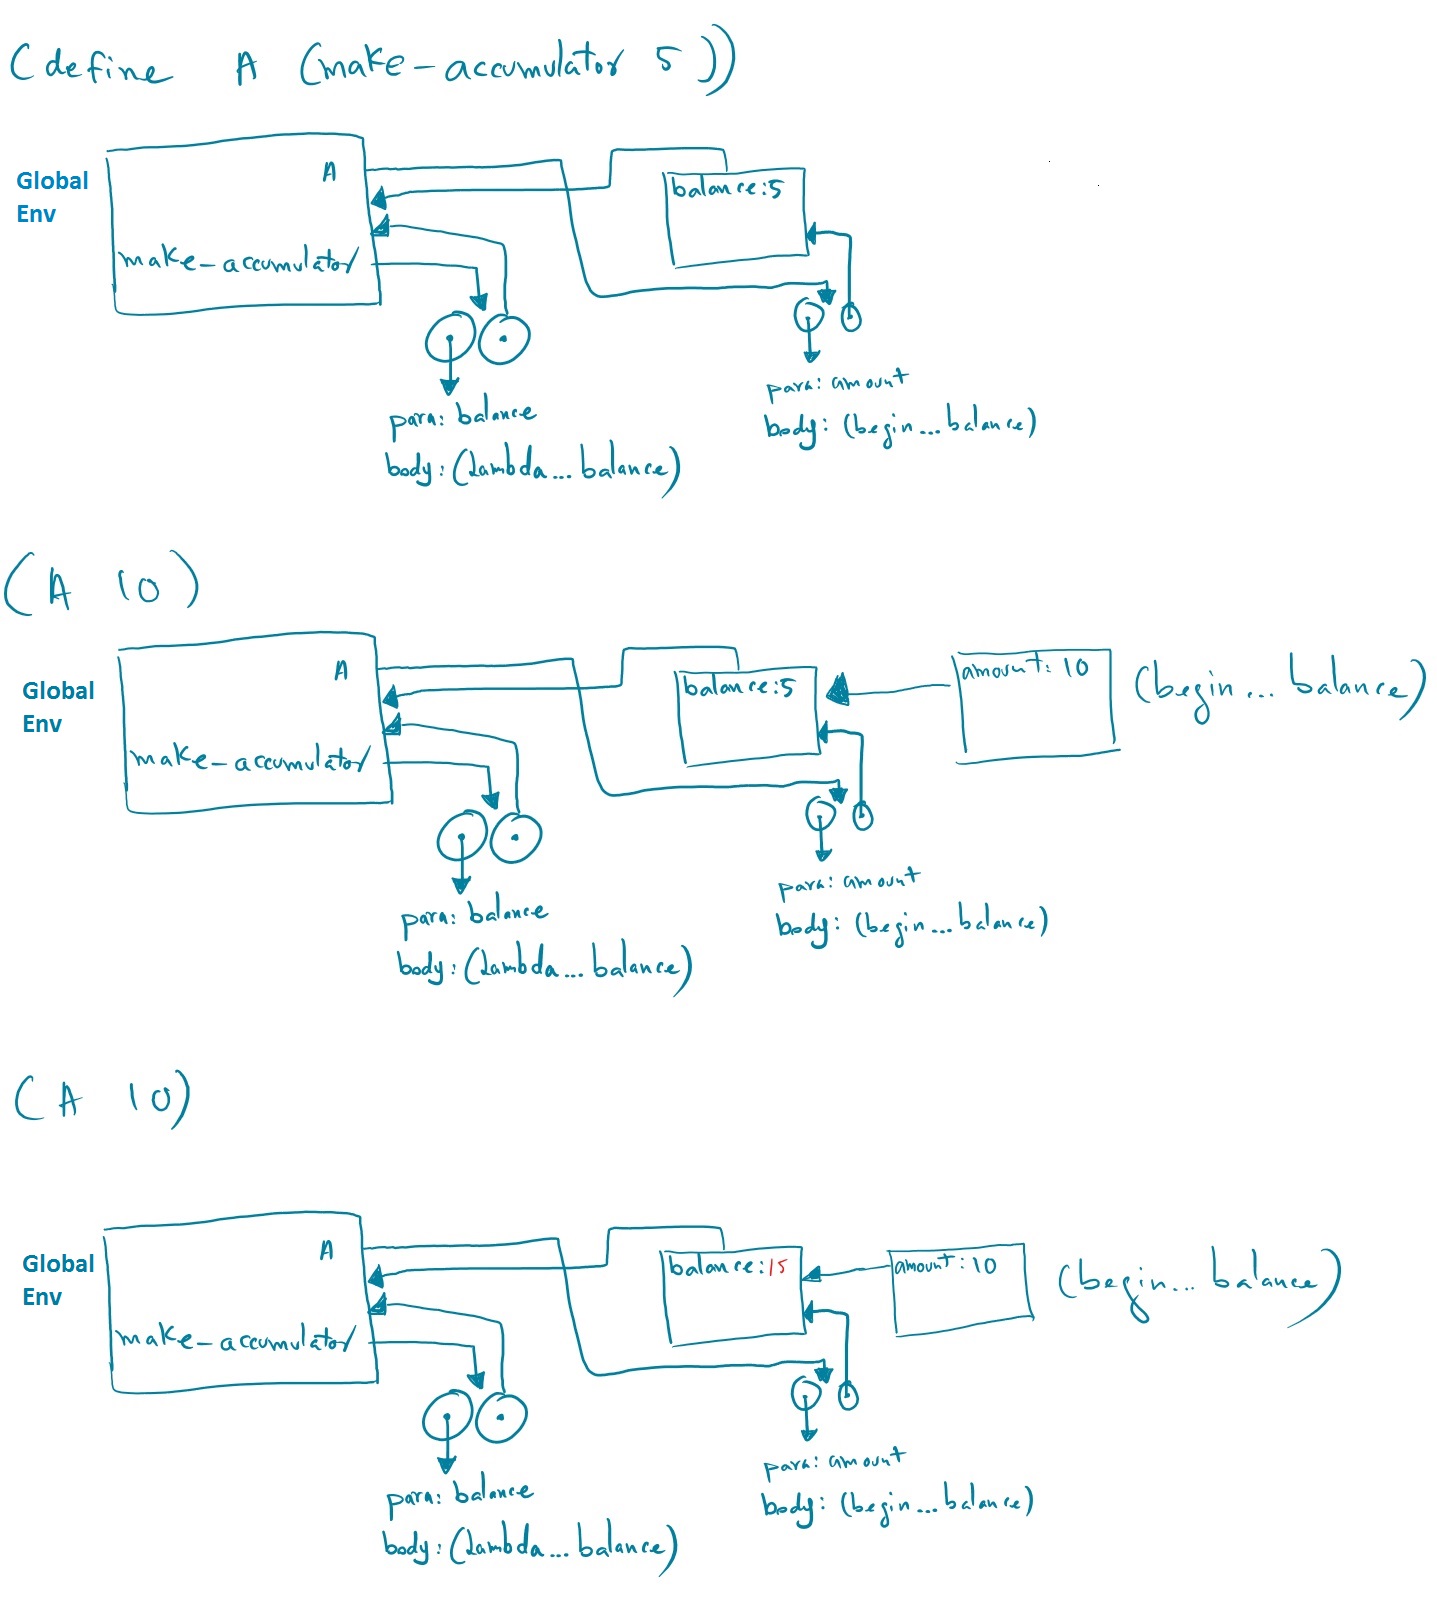 (define A (make-accumulator 5))
Global
Env
A
make-accumulator
balance:5
para: balance
body: (lambda... balance)
para: amount
body: (begin... balance)
(A 10)
Global
Env
A
make-accumulator
balance:5
amount: 10
(begin... balance)
para: balance
body: (lambda... balance)
para: amount
body: (begin... balance)
(A 10)
Global
Env
A
make-accumulator
balance:15
amount: 10
(begin... balance)
para: balance
body: (lambda... balance)
para: amount
body: (begin... balance)